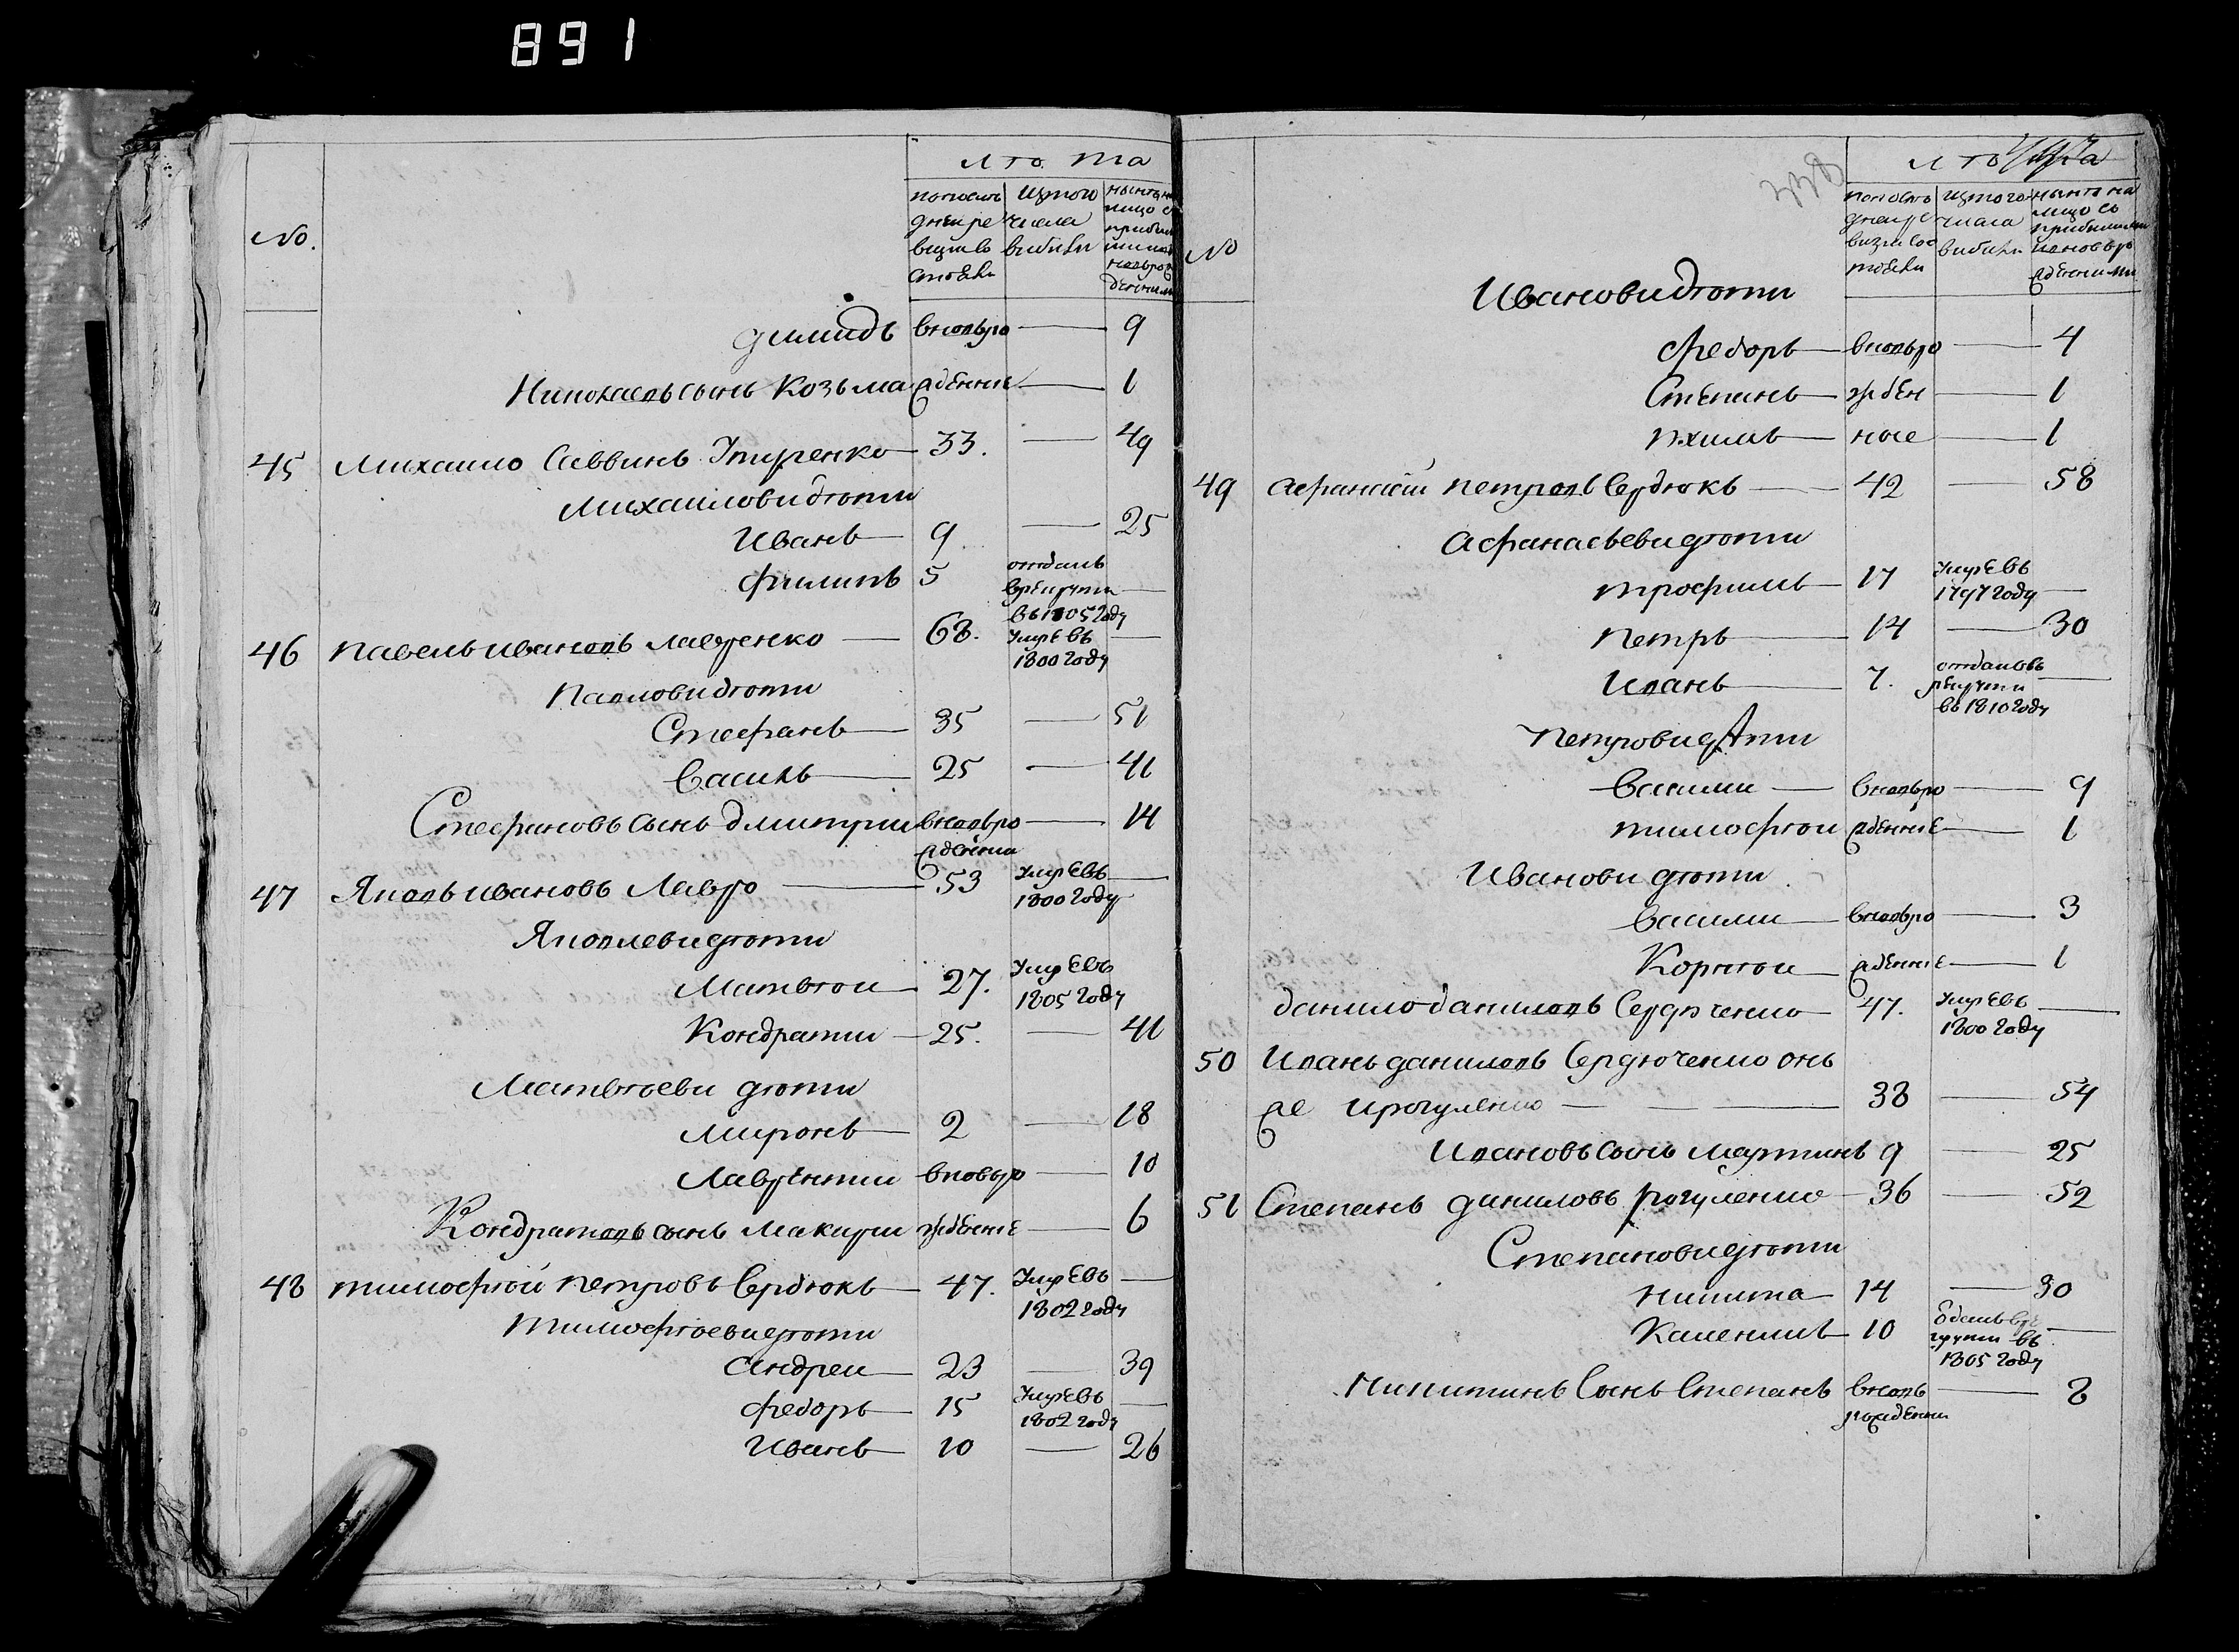 891
№.
лѣта
по последней ревизии состояли
из того числа выбыли
ныне на лицо с прибылыми и новорожденными
Димидъ вновьро — 9
Никола[евъ] сынъ Козьма жденние — 1
45 Михаило Саввинъ — 33. — 49
Михаиловы дѣти
Иванъ — 9 — 25
Филипъ 5 отданъ в рекруты въ 1805 году —
46 Павелъ Ивановъ Лавренко — 68. Умре въ 1800 году —
Павловы дѣти
Стефанъ — 35 — 51
Василь — 25 — 41
Стефановъ сынъ Дмитрии вновьрождении — 14
47 Яковъ Ивановъ Лавро — 53 Умре въ 1800 году —
Яковлевы дѣти
Матвѣи — 27. Умре въ 1805 году
Кондратии — 25. — 41
Матвѣевы дѣти
Миронъ — 2 — 18
Лаврентии вновьро — 10
Кондратовъ сынъ Макари жденние — 6
48 Тимофѣй Петровъ Сердюкъ — 47. Умре въ 1802 году —
Тимофѣевы дѣти
Андреи — 23 — 39
Федоръ — 15 Умре въ 1802 году —
Иванъ — 10 — 26
338
№
лѣта
по последней ревизии состояли
из того числа выбыли
ныне на лицо со прибылыми и новорожденними
Ивановы дѣти
Федоръ — вновьро — 4
Степанъ — жден — 1
ные — 1
49 Афанасий Петровъ Сердюкъ — 42 — 58
Афанасьевы дѣти
Трофимъ — 17 Умре въ 1797 году —
Петръ — 14 — 30
Иванъ — 7. отдан въ рекруты въ 1810 году —
Петровы дѣти
Василии — вновьро — 9
Тимофѣи жденние — 1
Ивановы дѣти
Василии — вновьро — 3
Корнѣи — жденние — 1
Данило Даниловъ Сердюченко — 47. Умре въ 1800 году —
50 Иванъ Даниловъ Сердюченко онъ
же и Рогуленко — 38 — 54
Ивановъ сынъ Мартинъ 9 — 25
51 Степанъ Даниловъ Рогуленко — 36 — 52
Степановы дѣти
Никита — 14 — 30
Каленикъ — 10 въ 1805 году —
Никитинъ сынъ Степанъ вновь рождении — 8